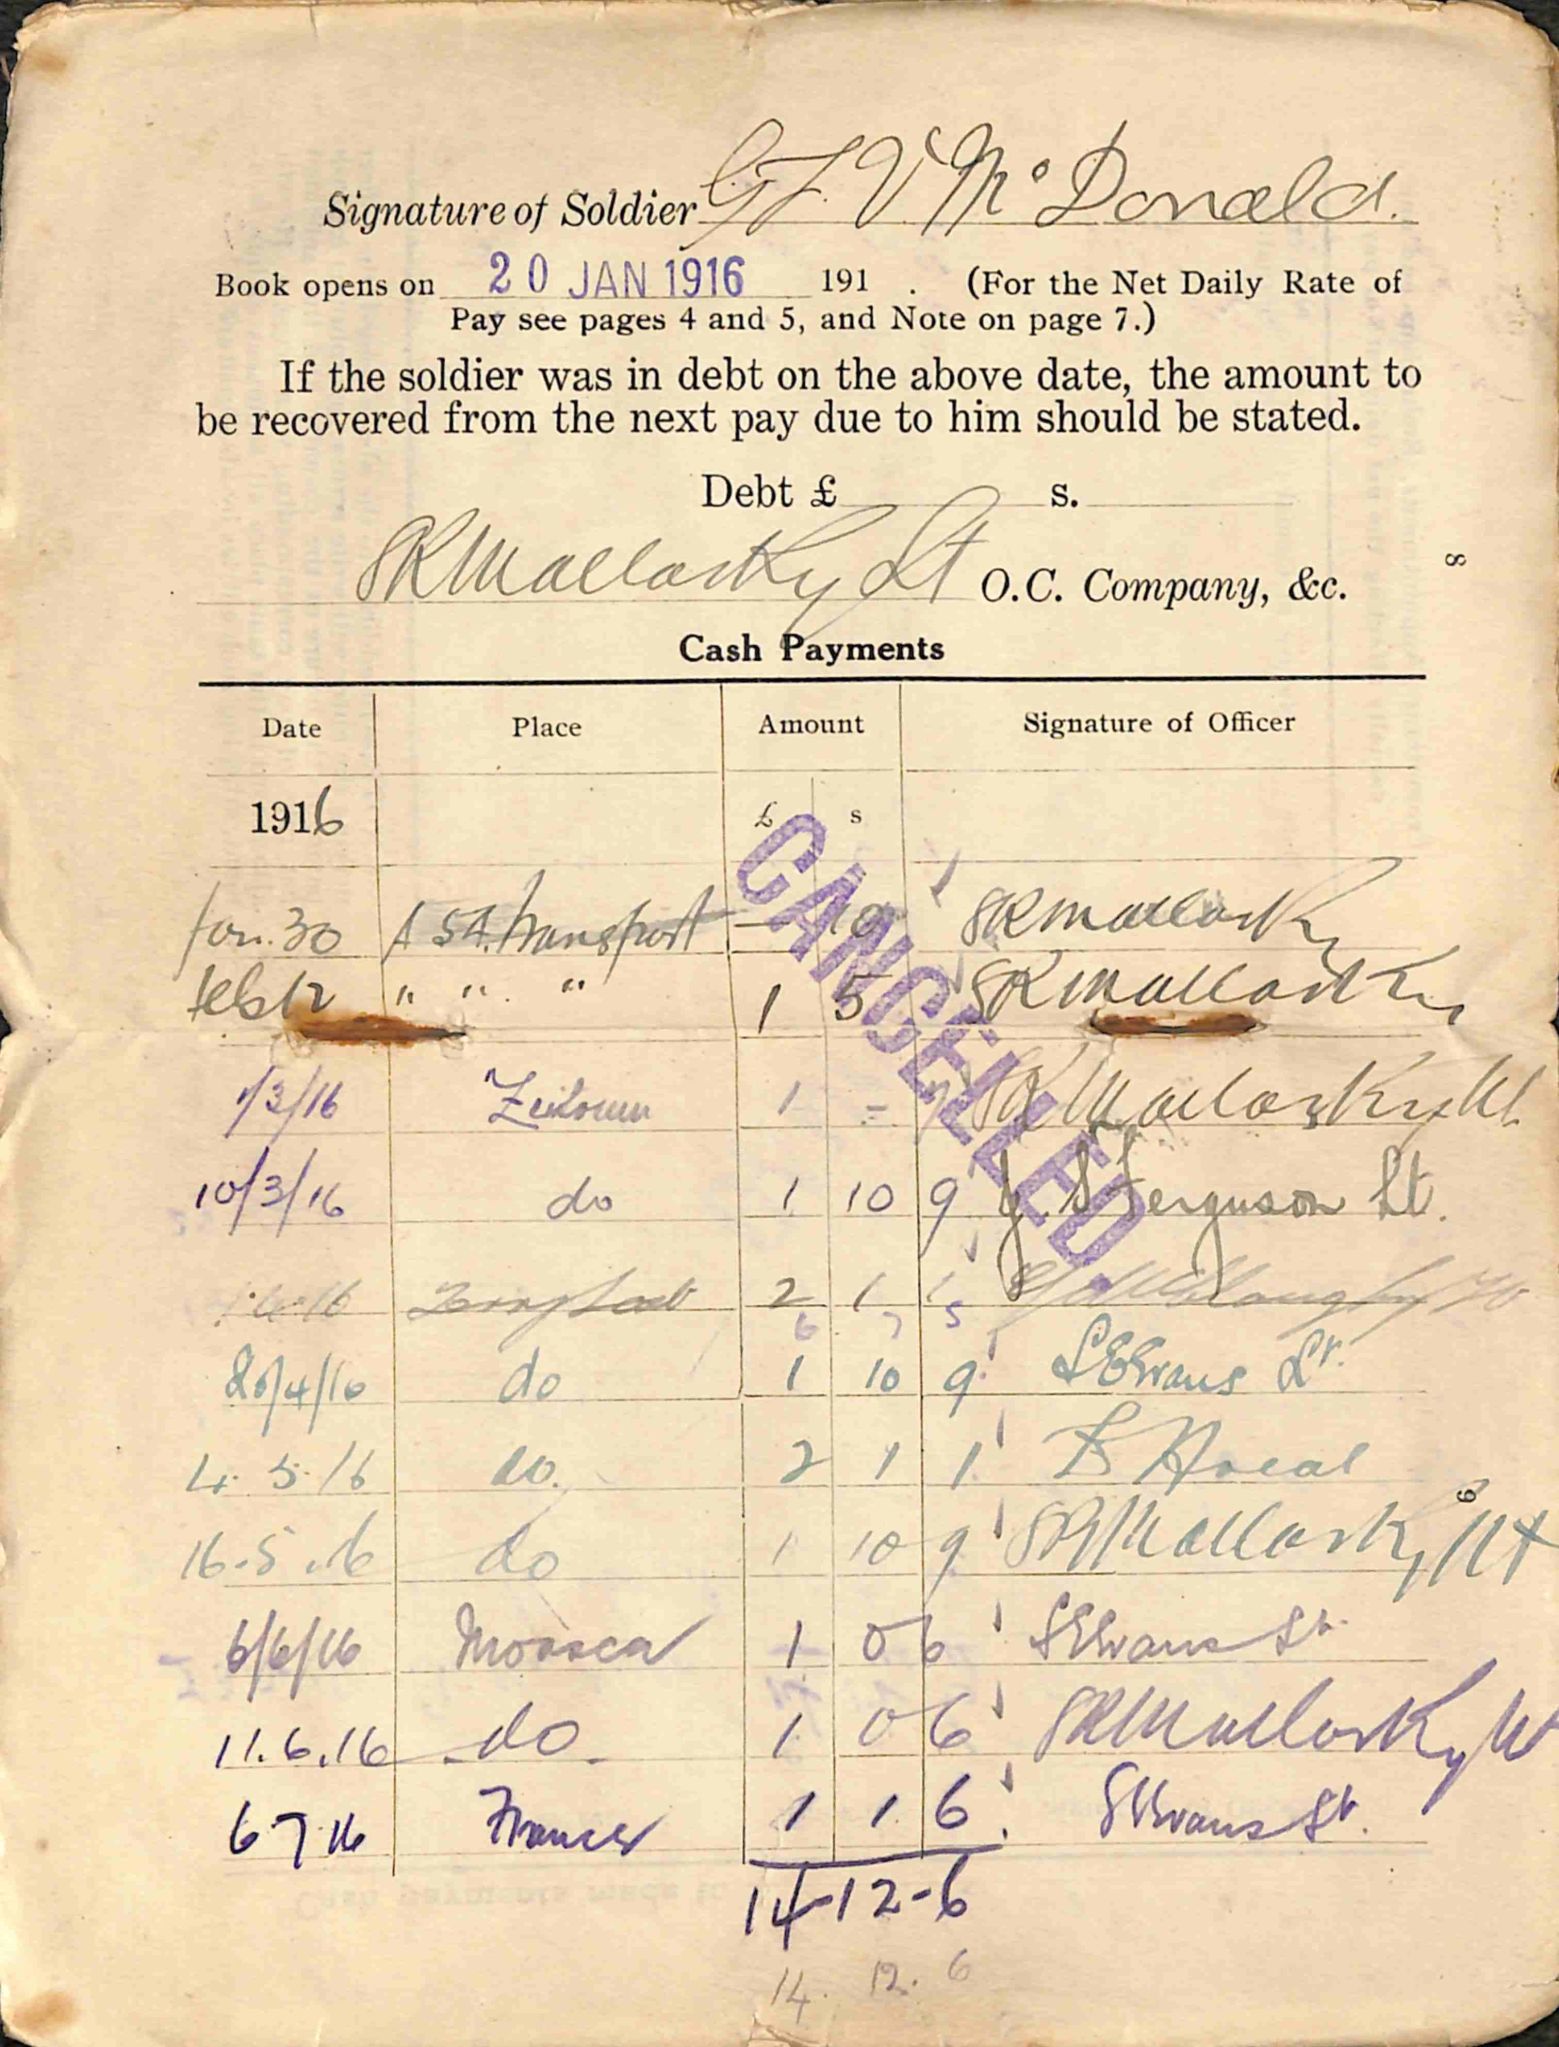 Signature of Soldier G F V McDonald.
Book opens on 20 JAN 1916 191 . (For the Net Daily Rate of
Pay see pages 4 and 5, and Note on page 7.)
If the soldier was in debt on the above date, the amount to
be recovered from the next pay due to him should be stated.
Debt £ s.
Lt O.C. Company, &c.
8
Cash Payments
Date Place Amount Signature of Officer
1916 £ s
CANCELLED.
Jan. 30 Transport — 10
Feb 12 " " " 1 5
1/3/16 Zeitoun 1 -
10/3/16 do 1 10 9 J. S Ferguson Lt.
16 2 1 1
6 7 5
20/4/16 do 1 10 9 S E Evans Lt.
4. 5. 16 do. 2 1 1
9
16.5.16 do 1 10 9
6/6/16 Moascar 1 0 6 S E Evans Lt
11.6.16 do 1 0 6
6 7 16 France 1 1 6 S E Evans Lt.
14-12-6
14. 12. 6